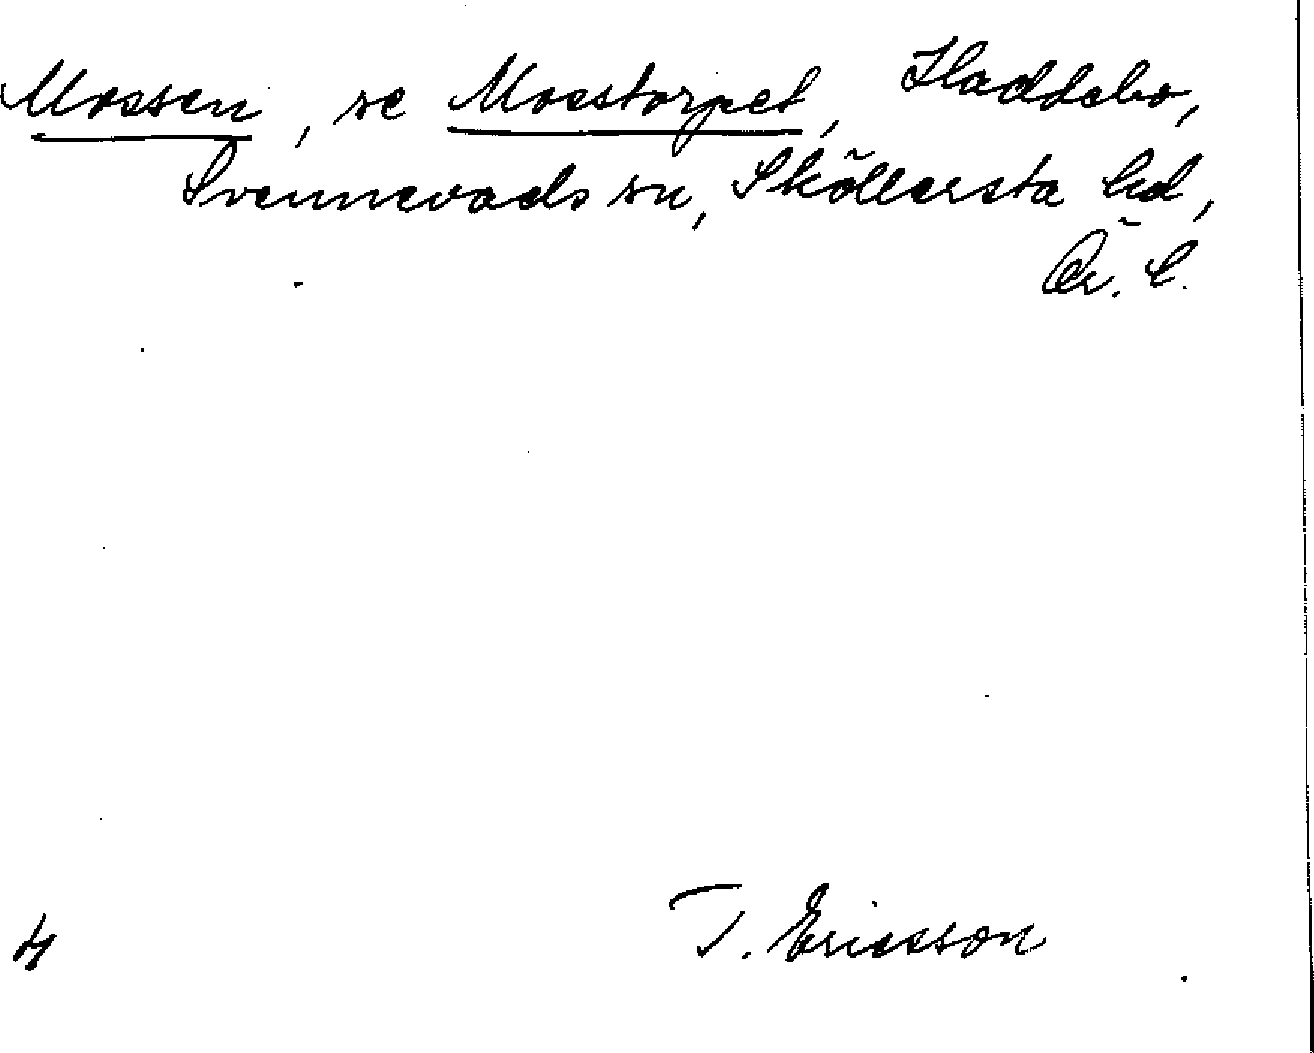 Mossen, se Mosstorpet, Haddebo,
Svennevads sn, Sköllersta hd,
Ör. l.
T. Ericsson
4